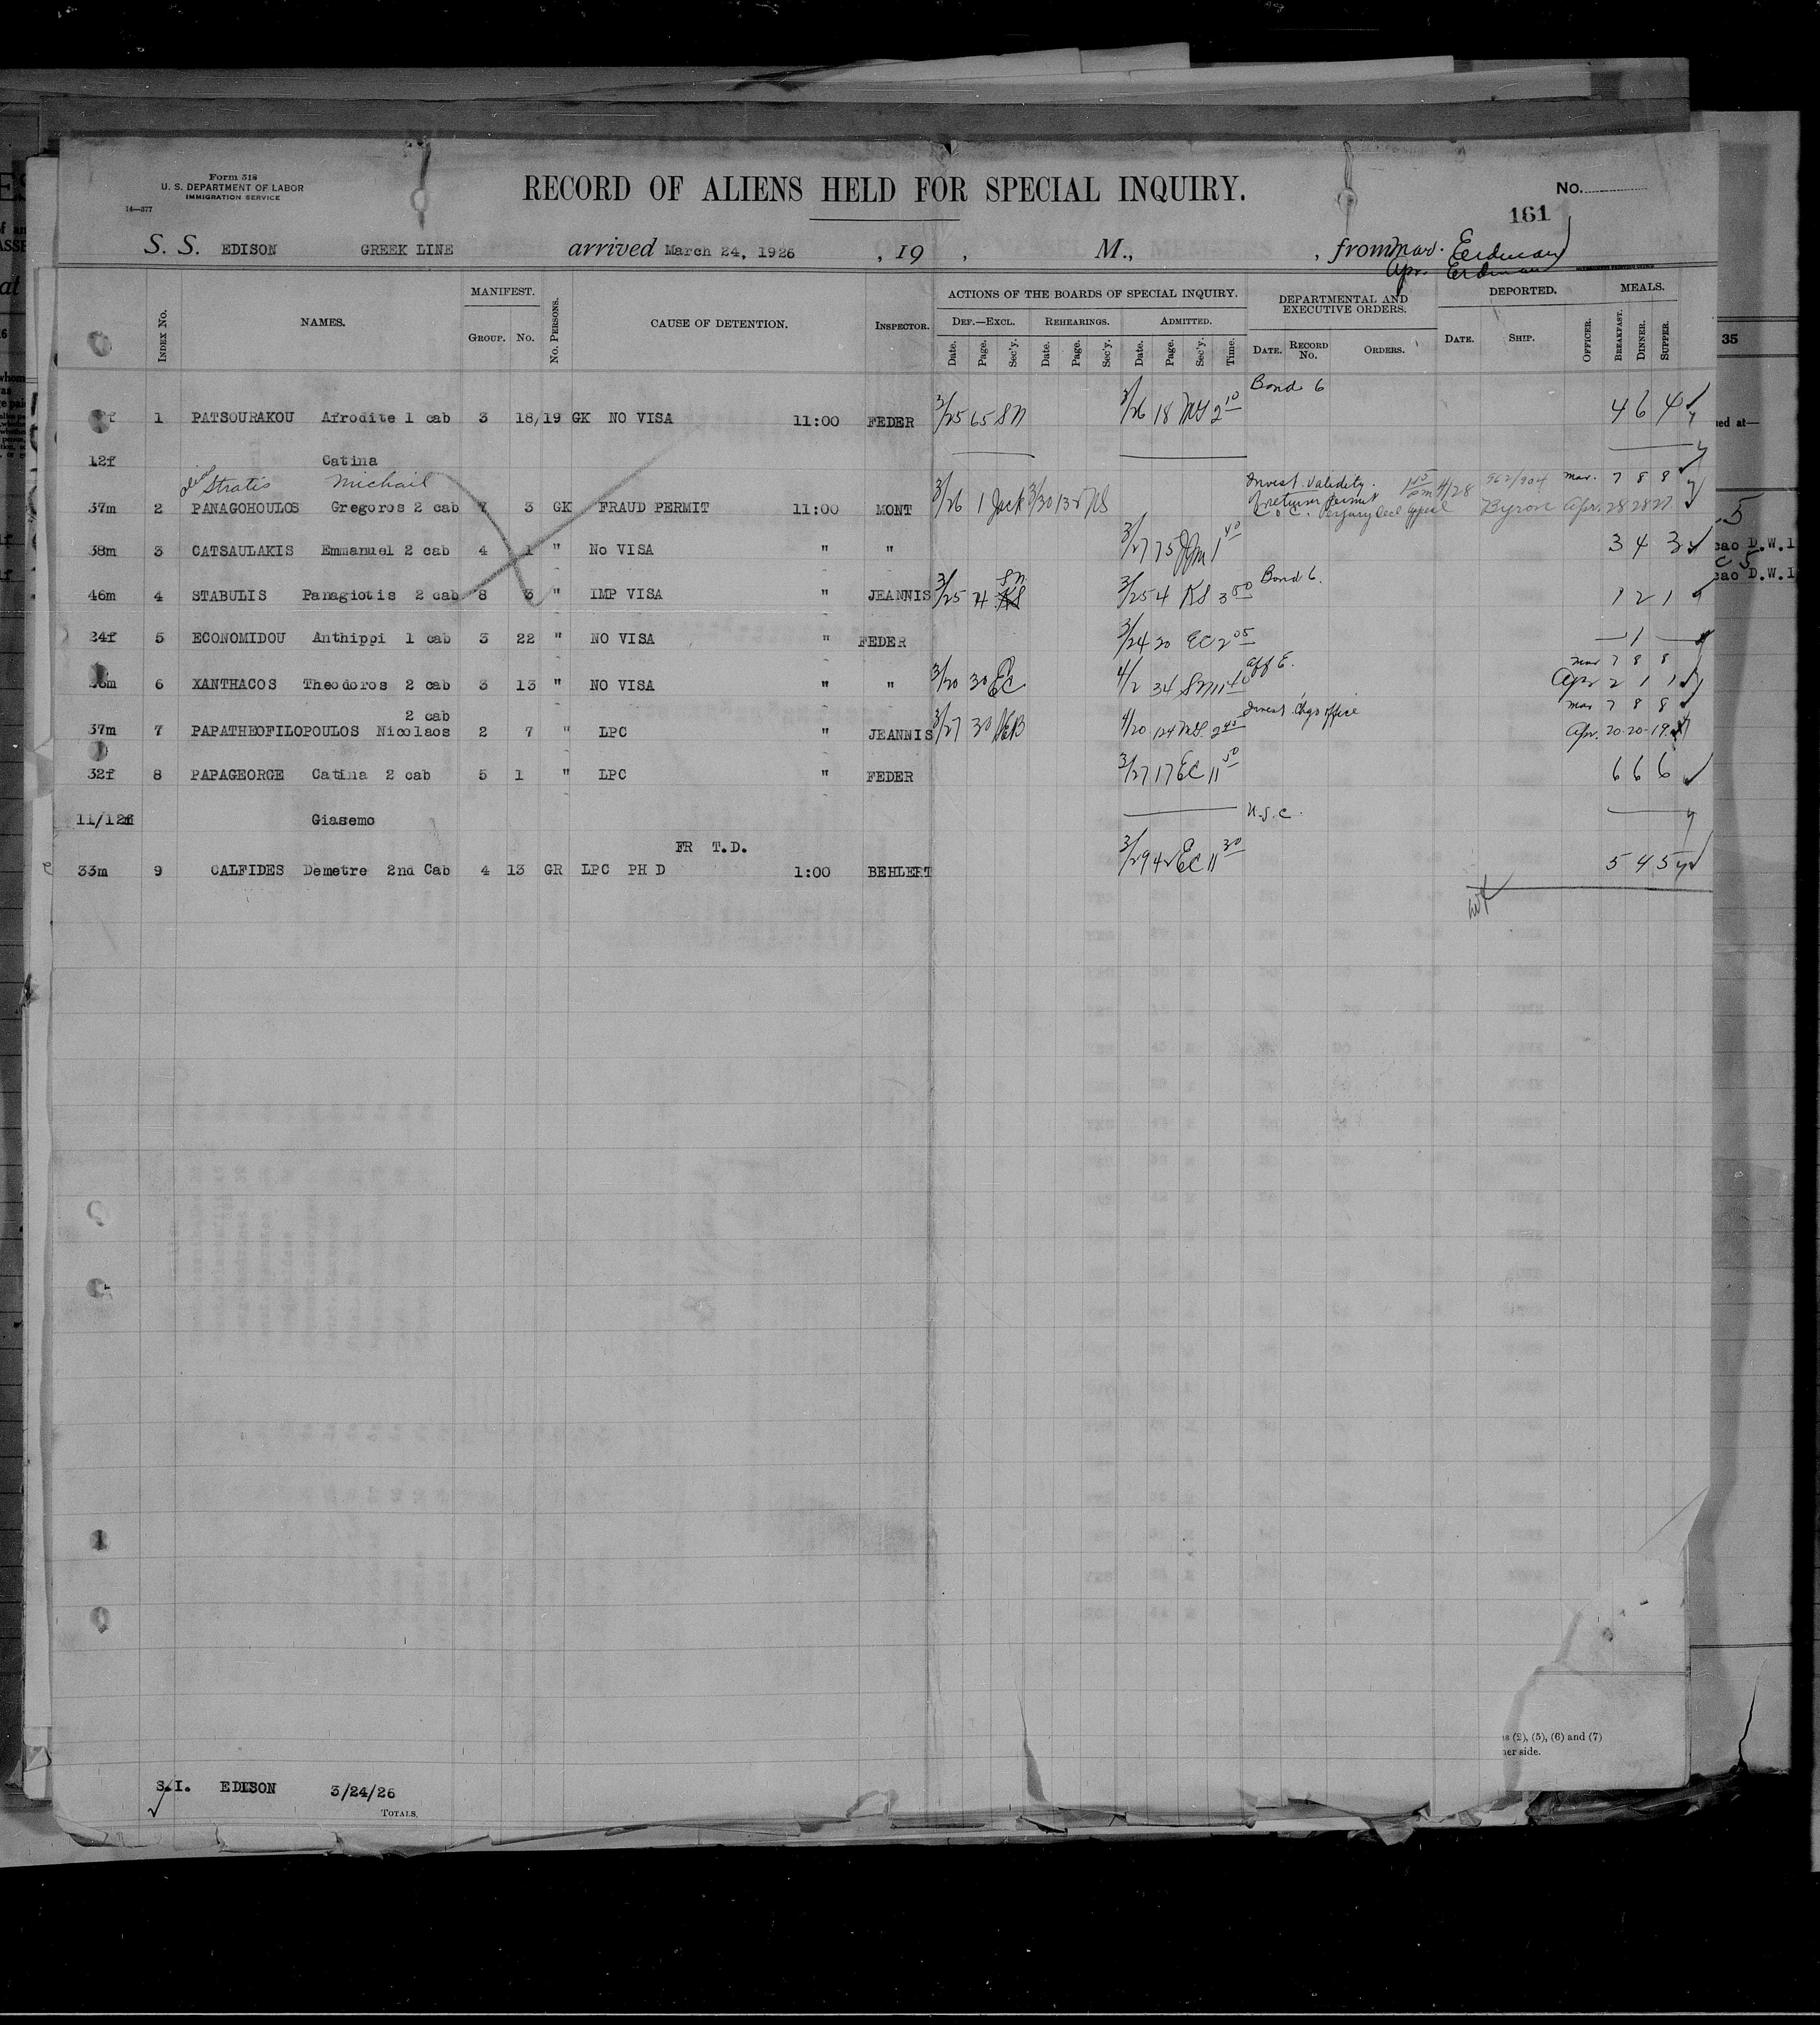 Form 518
U. S. DEPARTMENT OF LABOR
IMMIGRATION SERVICE
14—377
RECORD OF ALIENS HELD FOR SPECIAL INQUIRY.
No.
161
S. S. EDISON GREEK LINE arrived March 24, 1926 , 19 , M., , from Mar. Erdman
Apr. Erdman
INDEX No. NAMES. MANIFEST. GROUP. No. No. PERSONS. CAUSE OF DETENTION. INSPECTOR. ACTIONS OF THE BOARDS OF SPECIAL INQUIRY. DEF.—EXCL. Date. Page. Sec'y. REHEARINGS. Date. Page. Sec'y. ADMITTED. Date. Page. Sec'y. Time. DEPARTMENTAL AND EXECUTIVE ORDERS. DATE. RECORD No. ORDERS. DEPORTED. DATE. SHIP. OFFICER. MEALS. BREAKFAST. DINNER. SUPPER.
Bond 6
1 PATSOURAKOU Afrodite 1 cab 3 18/19 GK NO VISA 11:00 FEDER 3/25 65 SN 3/26 18 2 10 4 6 4
12f Catina
alias Stratis Michail Invest. Validity. 1 45 pm 4/28 Mar. 7 8 8
37m 2 PANAGOHOULOS Gregoros 2 cab 7 3 GK FRAUD PERMIT 11:00 MONT 3/26 1 Jack 3/30 of return permit Byron Apr. 28 28 27
38m 3 CATSAULAKIS Emmanuel 2 cab 4 1 " No VISA " " 3/27 75 1 40 3 4 3
46m 4 STABULIS Panagiotis 2 cab 8 3 " IMP VISA " JEANNIS 3/25 SN 3/25 4 KS 3 50 Bond 6. 1 2 1
24f 5 ECONOMIDOU Anthippi 1 cab 3 22 " NO VISA " FEDER 3/24 20 EC 2 05 1
Mar 7 8 8
6 XANTHACOS Theodoros 2 cab 3 13 " NO VISA " " 3/20 30 EC 4/2 34 Apr 2 1 1
2 cab Invest Chgo office Mar 7 8 8
37m 7 PAPATHEOFILOPOULOS Nicolaos 2 7 " LPC " JEANNIS 3/27 30 4/20 124 2 45 Apr. 20-20-19
32f 8 PAPAGEORGE Catina 2 cab 5 1 " LPC " FEDER 3/27 17 EC 11 50 6 6 6
11/12 Giasemo U.S.C.
FR T.D.
33m 9 CALFIDES Demetre 2nd Cab 4 13 GR LPC PH D 1:00 BEHLERT 3/29 42 EC 11 30 5 4 5
35
ed at—
cao D.W.I
cao D.W.I
s (2), (5), (6) and (7)
her side.
S.I. EDISON 3/24/26
TOTALS.